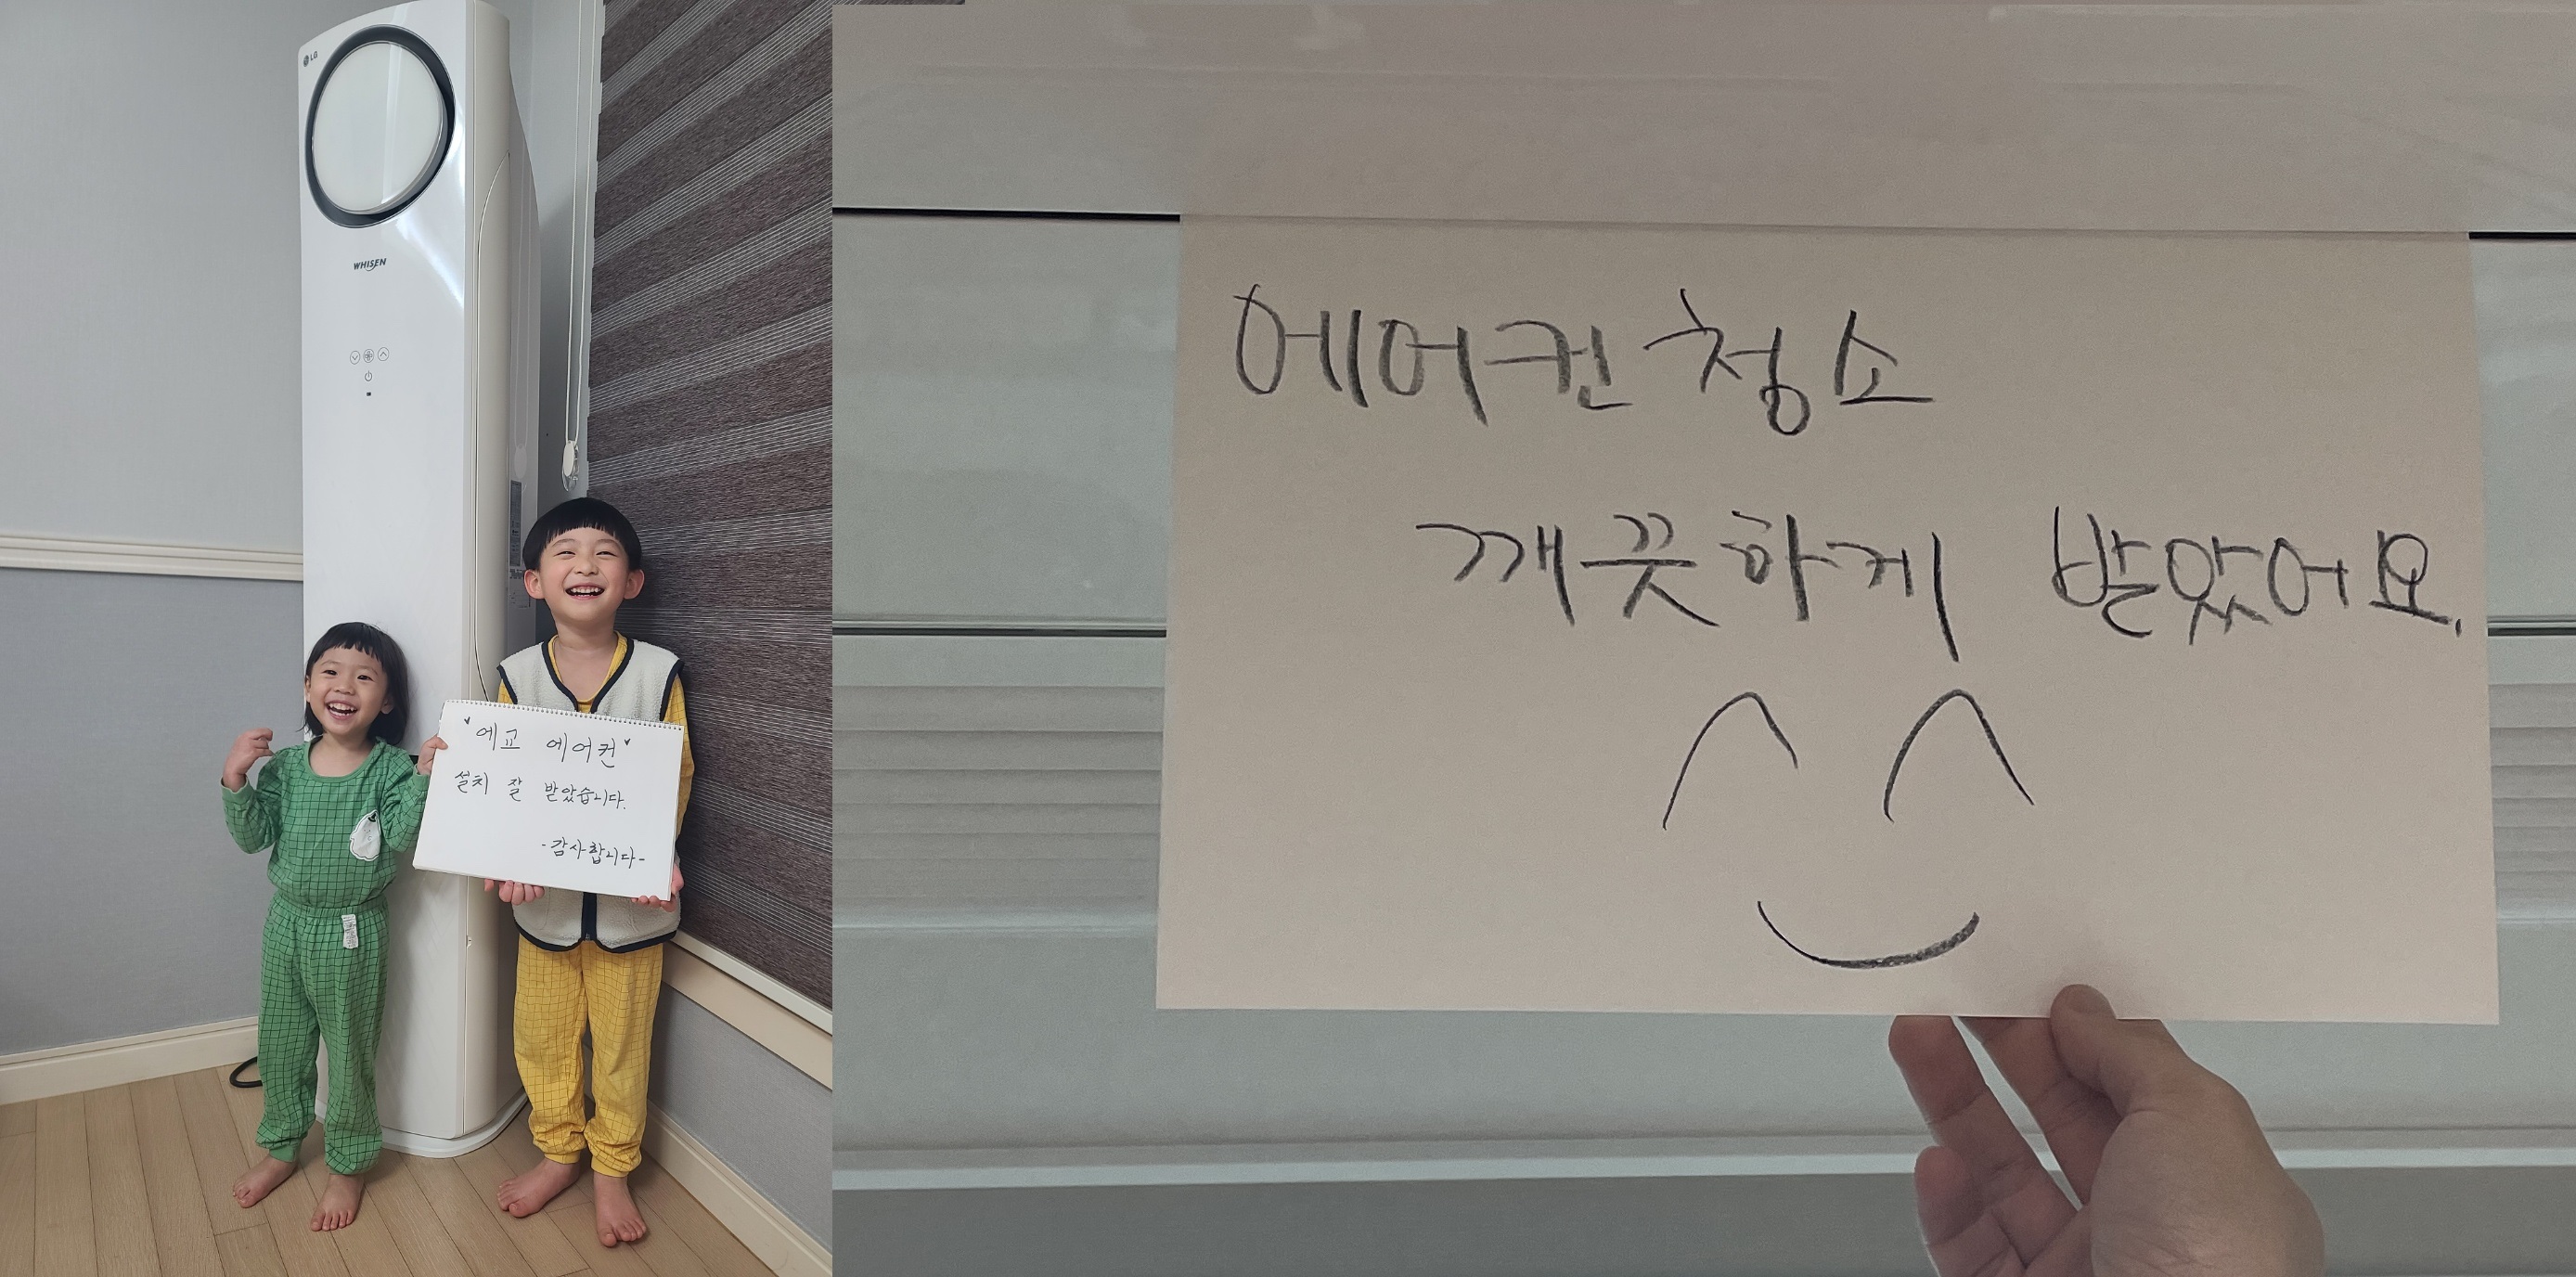 LG
WHISEN
"에교 에어컨"
설치 잘 받았습니다.
-감사합니다-
에어컨청소
깨끗하게 받았어요.